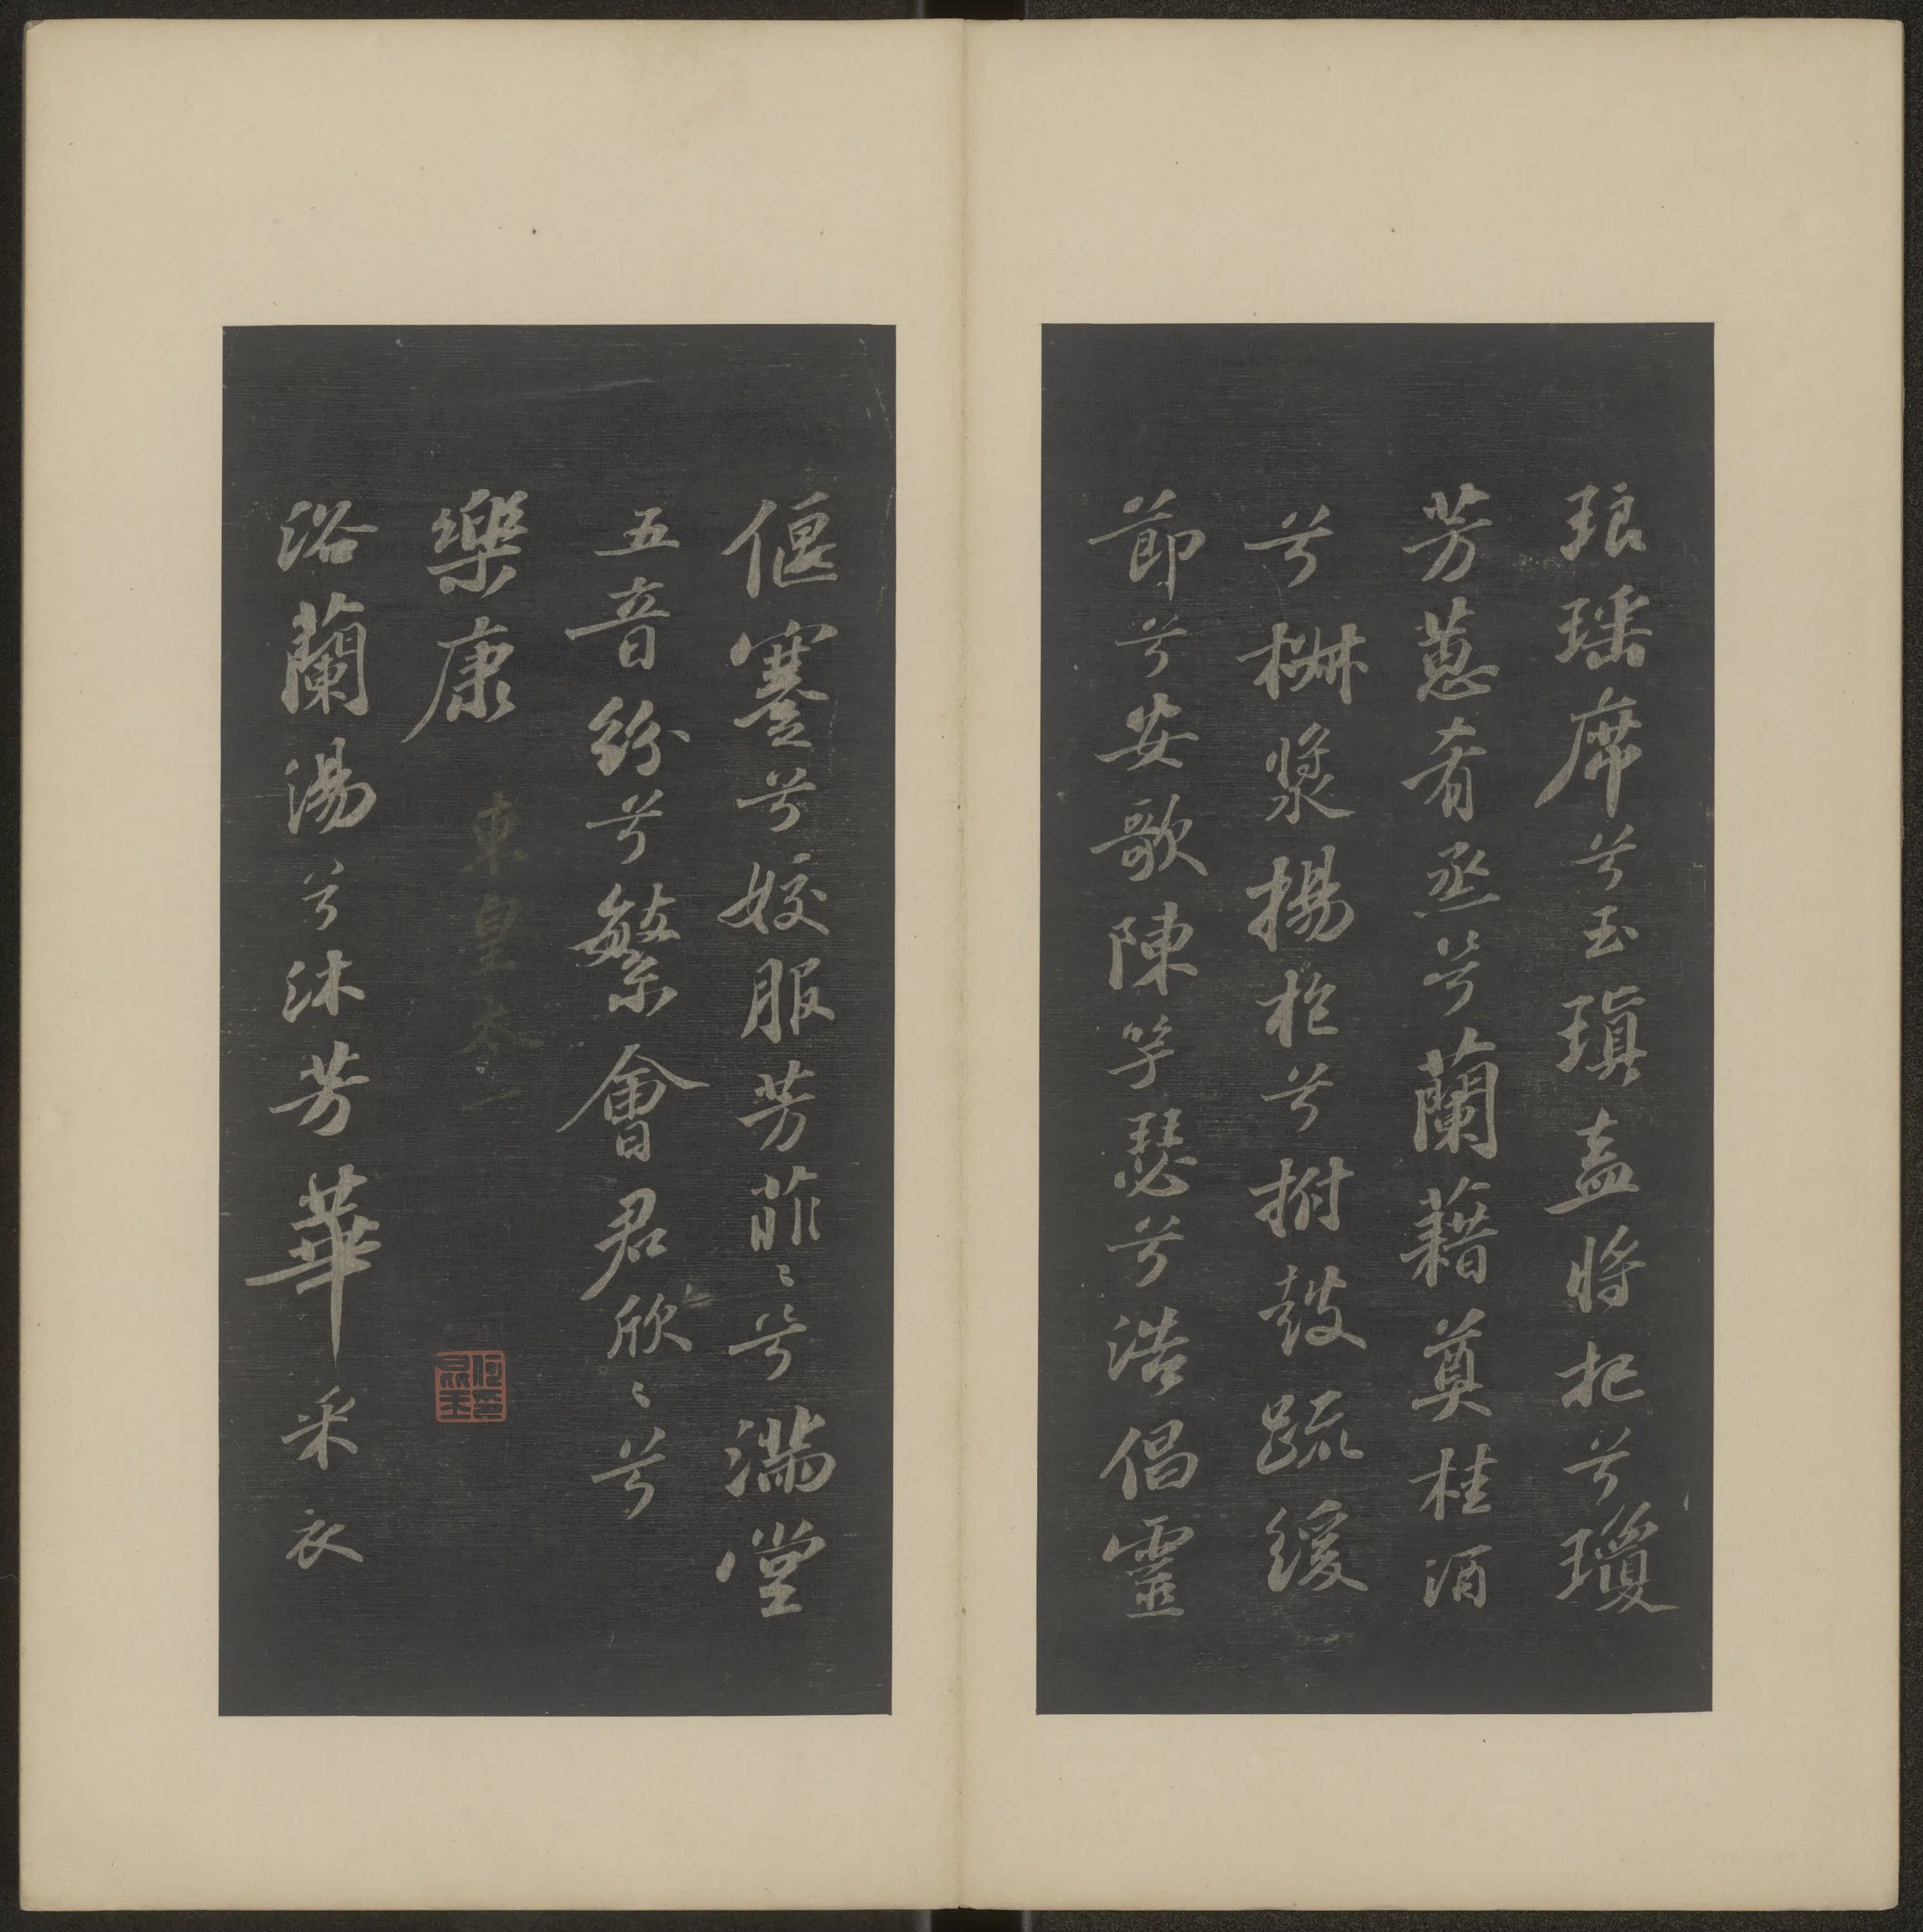 琅瑶席兮玉瑱盍將把兮瓊
芳蕙肴烝兮蘭藉奠桂酒
兮椒漿揚枹兮拊鼓疏緩
節兮安歌陳竽瑟兮浩倡靈
偃蹇兮姣服芳菲〻兮滿堂
五音紛兮繁會君欣〻兮
樂康
東皇太一
浴蘭湯兮沐芳華采衣